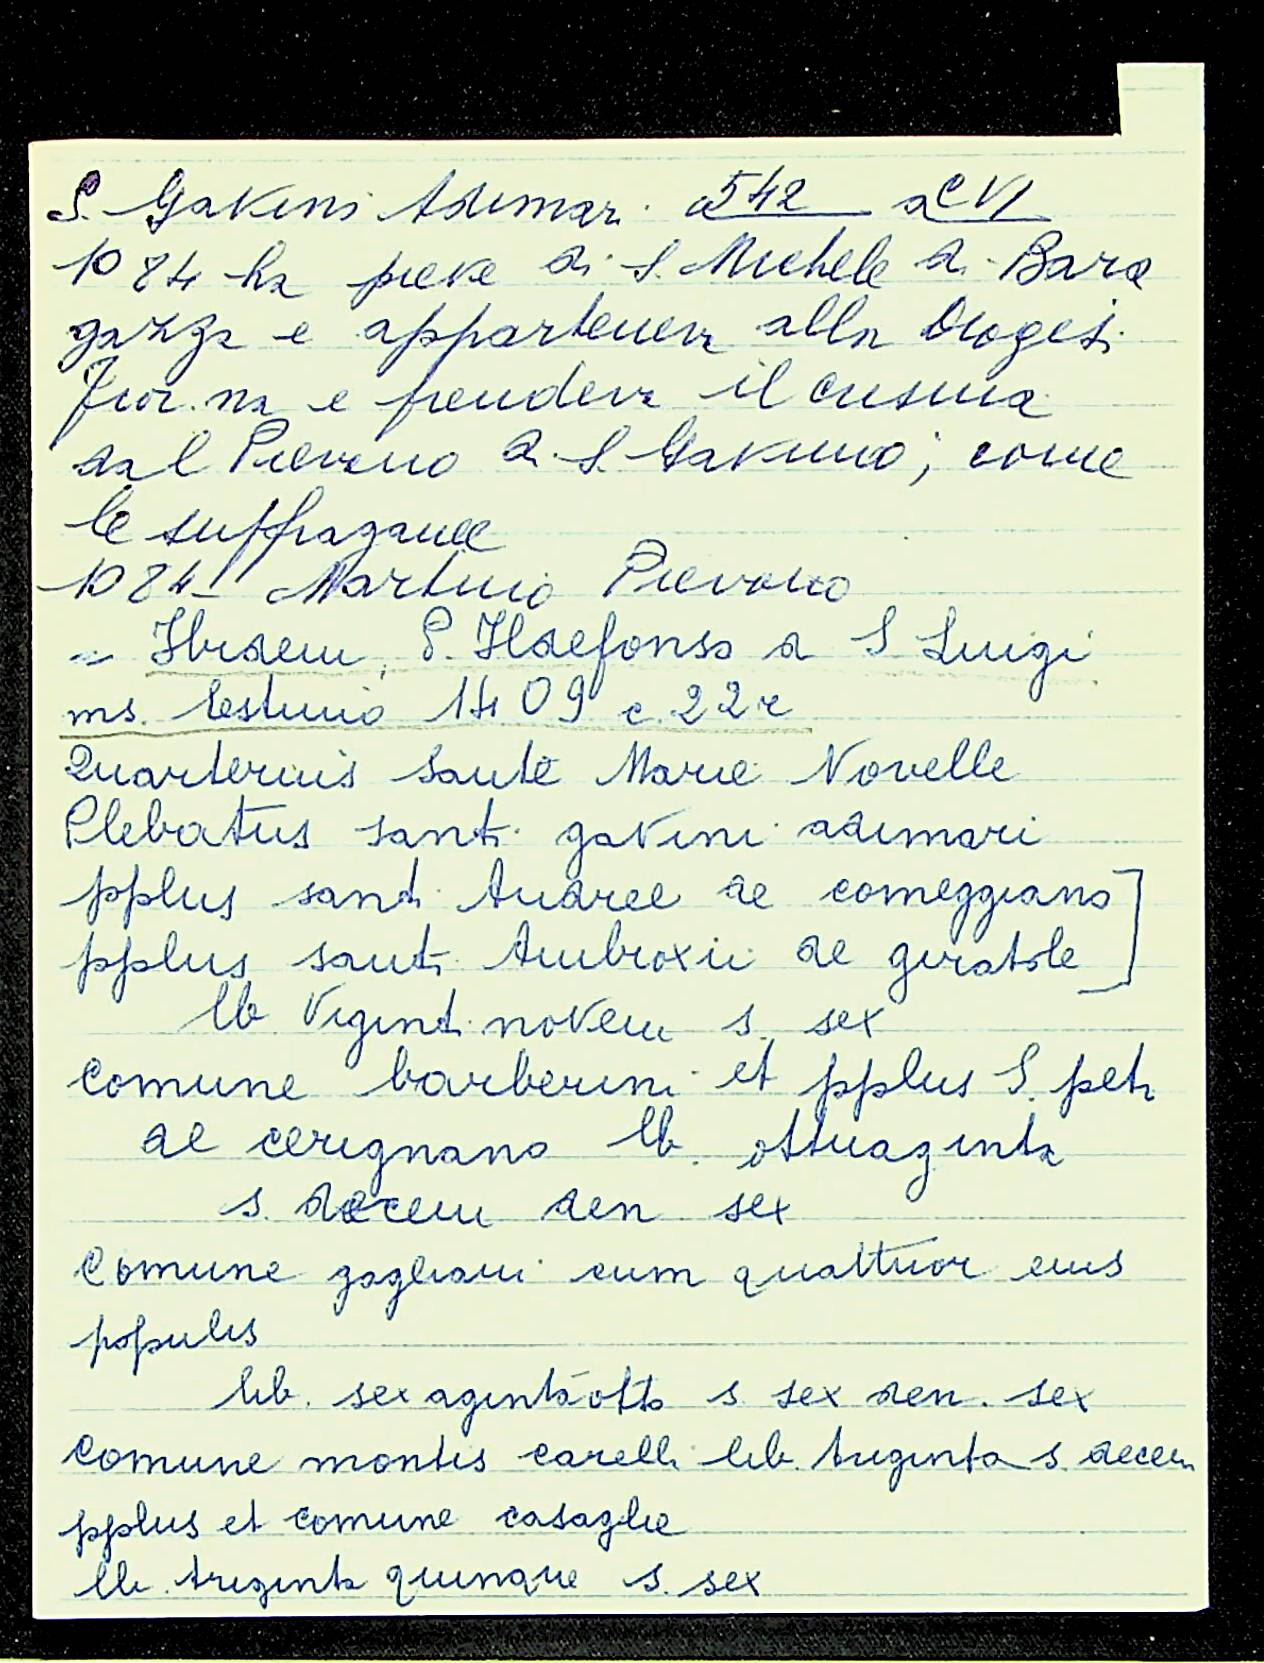 S. Gavini Adimari a 542 a CVI
1084 la pieve di S. Michele di Bara
gazza e apparteneva alla Diogesi
Fior.na e prendeva il crisma
dal Pievano di S. Gavino; come
le suffraganee
1084 - Martino Pievano
Ibidem, P. Ildefonso di S Luigi
ms. 1409 c. 22r
Quarternis Sante Marie Novelle
Plebatus santi gavini adimari
pplus santi Andree de comeggiano
pplus santi Ambroxii de giratole
lb viginti novem s. sex
comune barberini et pplus S. petri
de cerignano lb. ottuaginta
s. decem den sex
Comune gagliani cum quattuor eius
populis
lib. sexaginta otto s. sex den. sex
comune montis carelli lib. triginta s. decem
pplus et comune casaglie
lb. triginta quinque s. sex